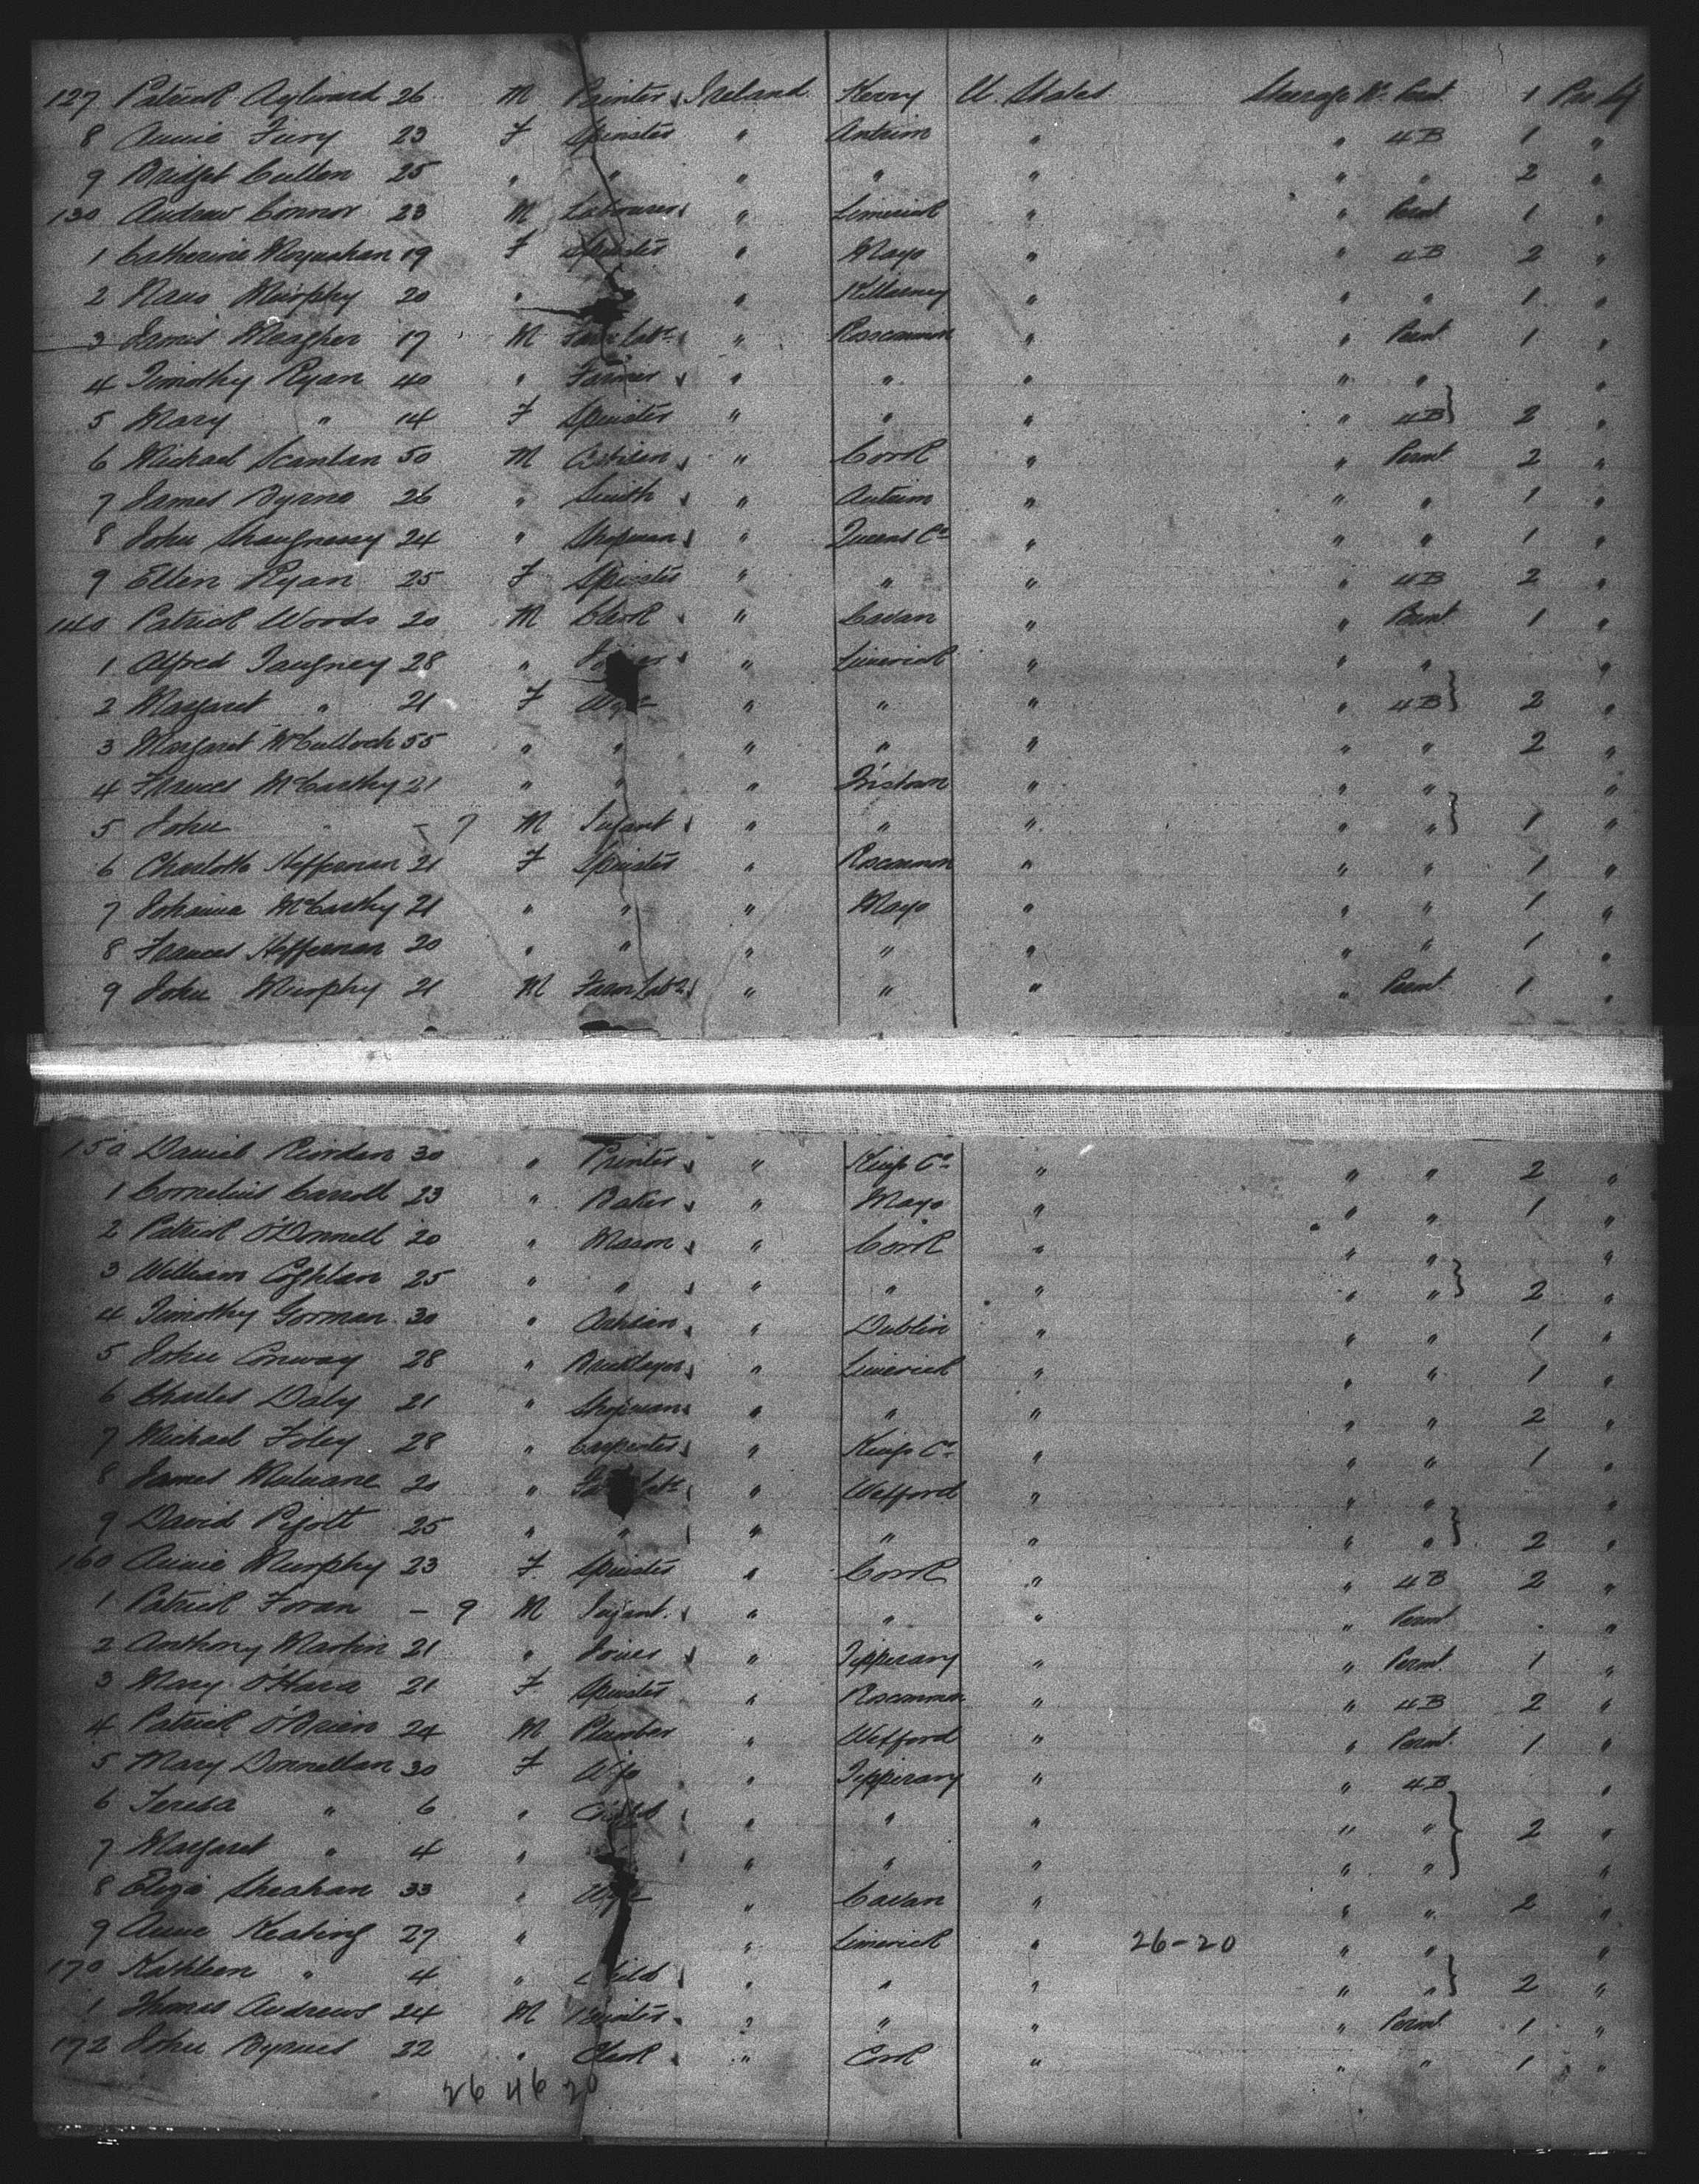 127 Patrick Aylward 26 M Printer Ireland Kerry U. States Steerage 1
8 Annie Fury 23 F Spinster " Antrim " " 4B 1 "
9 Bridget Cullen 25 " " " " " " " 2 "
130 Andrew Connor 23 M Labourer " Limerick " " Permt 1 "
1 Catherine Moynahan 19 F Spinster " Mayo " " 4B 2 "
2 Nano Murphy 20 " " Killarney " " " 1 "
3 James Meagher 17 M Farm Labr " Roscommon " " Permt 1 "
4 Timothy Ryan 40 " Farmer " " " " " "
5 Mary " 14 F Spinster " " " " 4B 2 "
6 Michael Scanlan 50 M Artisan " Cork " " Permt 2 "
7 James Byrne 26 " Smith " Antrim " " " 1 "
8 John Shaugnessy 24 " Shopman " Queens Co " " " 1 "
9 Ellen Ryan 25 F Spinster " " " " 4B 2 "
140 Patrick Woods 20 M Clerk " Cavan " " Permt 1 "
1 Alfred Taugney 28 " " Limerick " " " "
2 Margaret " 21 F Wife " " " " 4B 2 "
3 Margaret McCulloch 55 " " " " " " " 2 "
4 Frances McCarthy 21 " " " " " " "
5 John - 7 M Infant " " " " " 1 "
6 Charlotte Heffernan 21 F Spinster " Roscommon " " " 1 "
7 Johanna McCarthy 21 " " " Mayo " " " 1 "
8 Frances Heffernan 20 " " " " " " " 1 "
9 John Murphy 21 M Farm Labr " " " " Permt 1 "
150 Daniel Riordan 30 " Printer " Kings Co " " " 2 "
1 Cornelius Carroll 23 " Baker " Mayo " " " 1 "
2 Patrick O'Donnell 20 " Mason " Cork " " " "
3 William Coghlan 25 " " " " " " " 2 "
4 Timothy Gorman 30 " Artisan " Dublin " " " 1 "
5 John Conway 28 " Bricklayer " Limerick " " " 1 "
6 Charles Daly 21 " Shopman " " " " " 2 "
7 Michael Foley 28 " Carpenter " Kings Co " " " 1 "
8 James Mulvane 20 " " Wexford " " " "
9 David Pigott 25 " " " " " " " 2 "
160 Annie Murphy 23 F Spinster " Cork " " 4B 2 "
1 Patrick Foran - 9 M Infant " " " " Permt "
2 Anthony Martin 21 " Joiner " Tipperary " " Permt 1 "
3 Mary O'Hara 21 F Spinster " Roscommon " " 4B 2 "
4 Patrick O'Brien 24 M Plumber " Wexford " " Permt 1 "
5 Mary Donnellan 30 F Wife " Tipperary " " 4B "
6 Teresa " 6 " Child " " " " " 2 "
7 Margaret " 4 " " " " " " "
8 Eliza Sheahan 33 " Wife " Cavan " " " 2 "
9 Anne Keating 27 " " Limerick " 26-20 " " "
170 Kathleen " 4 " Child " " " " " 2 "
1 Thomas Andrews 24 M Printer " " " " Permt 1 "
172 John Byrnes 22 " Clerk " Cork " " " 1 "
26 46 20